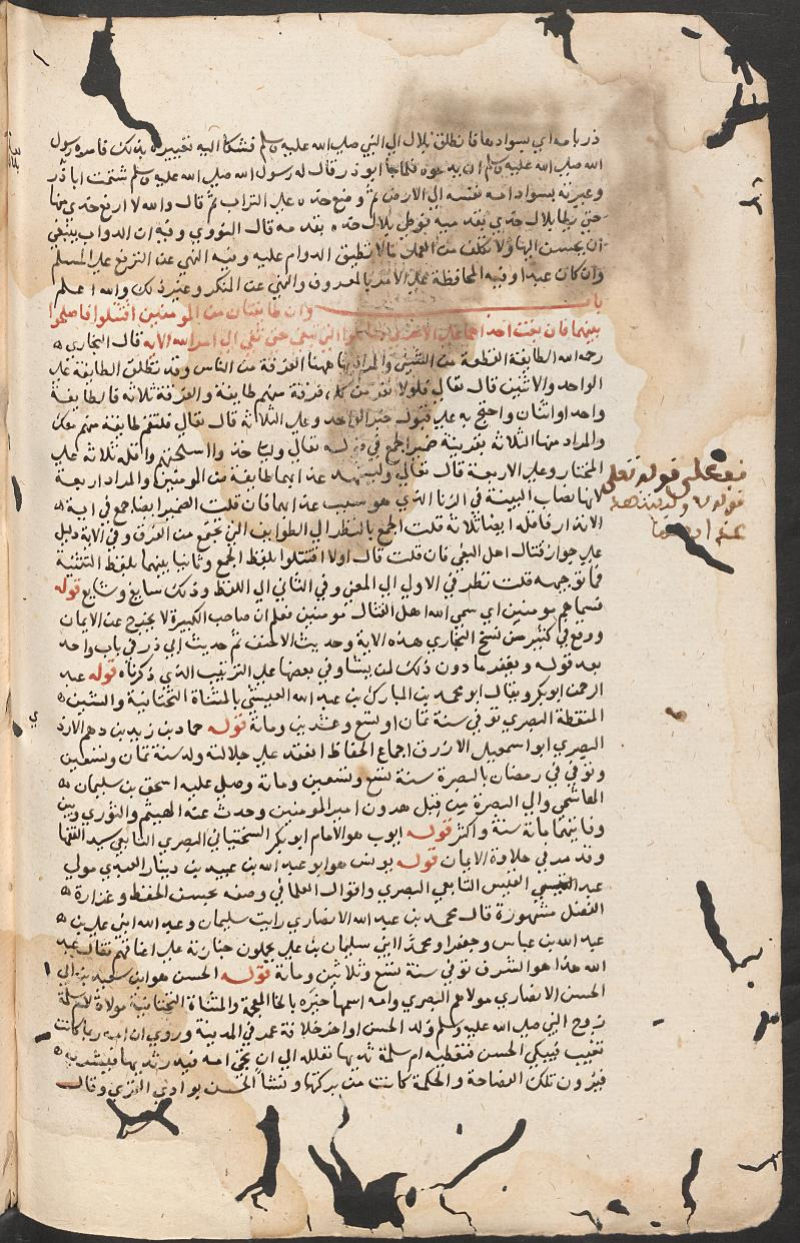 ذر بامه اي بسوادها فانطلق بلال الي النبي صلي الله عليه وسلم فشكا اليه تعييره بذلك فامره رسول
الله صلي الله عليه وسلم ان يدعوه فلما جا ابو ذر قال له رسول الله صلي الله عليه وسلم شتمت اباذر
وعيرته بسواد امه نفسه الي الارض ثم وضع خده علي التراب ثم قال والله لا ارفع خدي منها
حتي يطا بلال خدي بقدميه فوطي بلال خده بقدمه قال النووي وفيه ان الدواب ينبغي
ان يحسن اليها ولا تكلف من العمل ما لا تطيق الدوام عليه وفيه النهي عن الترفع علي المسلم
وان كان عبدا وفيه المحافظة علي الامر بالمعروف والنهي عن المنكر وغير ذلك والله اعلم
باب وان طايفتان من المومنين اقتتلوا فاصلحوا
بينهما فان بغت احداهما علي الاخري فقاتلوا التي تبغي حتي تفي الي امر الله الايه قال البخاري
رحمه الله الطايفة القطعة من الشي والمراد بها ههنا الفرقة من الناس وقد تطلق الطايفة علي
الواحد والاثنين قال تعالي فلولا نفر من كل فرقة منهم طايفة والفرقة ثلاثه فالطايفة
واحد او اثنان واحتج به علي قبول خبر الواحد وعلي الثلاثة قال تعالي فلتقم طايفة منهم معك
والمراد منها الثلاثه بقرينة ضمير الجمع في قوله تعالي ولياخذوا اسلحتهم واقله ثلاثه علي
المختار وعلي الاربعة قال تعالي وليشهد عذابهما طايفة من المومنين والمراد اربعة
لانها نصاب البينة في الزنا الذي هو سبب عذابهما فان قلت الضمير ايضا جمع في اية
الانذار فاقله ايضا ثلاثة قلت الجمع بالنظر الي الطوايف التي تجتمع من الفرق وفي الاية دليل
علي جواز قتال اهل البغي فان قلت قال اولا اقتتلوا بلفظ الجمع وثانيا بينهما بلفظ التثنية
فما توجيهه قلت نظر في الاول الي المعني وفي الثاني الي اللفظ وذلك سايغ وشايع قوله
فسماهم مومنين اي سمي الله اهل القتال مومنين فعلم ان صاحب الكبيرة لا يخرج عن الايمان
ووقع في كثير من نسخ البخاري هذه الاية وحديث الاحنف ثم حديث ابي ذر في باب واحد
بعد قوله ويغفر ما دون ذلك لمن يشا وفي بعضها علي الترتيب الذي ذكرناه قوله عبد
الرحمن ابو بكر ويقال ابو محمد بن المبارك بن عبد الله العيشي بالمثناة التحتانية والشين
المنقطة البصري توفي سنة ثمان او تسع وعشرين وماية قوله حماد بن زيد بن درهم الازدي
البصري ابو اسمعيل الازرق اجماع الحفاظ انعقد علي جلالته ولد سنة ثمان وتسعين
وتوفي في رمضان بالبصرة سنة تسع وتسعين وماته وصلي عليه اسحق بن سليمان
الهاشمي والي البصرة من قبل هرون امير المومنين وحدث عنه الهيثم والثوري وبين
وفاتيهما ماية سنة واكثر قوله ايوب هو الامام ابو بكر السختياني البصري التابعي سيد الفقها
وقد مر في حلاوة الايمان قوله يونس هو ابو عبد الله بن عبيد بن دينار العبدي مولي
عبد القيس التابعي البصري واقوال العلما في وصفه بحسن الحفظ وغزارة
الفضل مشهورة قال محمد بن عبد الله الانصاري رايت سليمان وعبد الله ابني علي بن
عبد الله بن عباس وجعفرا ومحمدا ابني سليمان بن علي يحملون جنازته علي اعناقهم فقال عبد
الله هذا هو الشرف توفي سنة تسع وثلاثين ومائة قوله الحسن هو ابن سعيد بن ابي
الحسن الانصاري مولاهم البصري وامه اسمها خيره بالخا المعجمة والمثناة التحتانية مولاة لام سلمة
زوج النبي صلي الله عليه وسلم ولد الحسن اواخر خلافة عمر في المدينة وروي ان امه ربما كانت
تغيب فيبكي الحسن فتعطيه ام سلمة ثديها تعلله الي ان تجي امه فيدر ثديها فيشربه
فيرون تلك الفصاحة والحكمة كانت من بركتها ونشا الحسن بوادي القري وقال
قف علي قوله تعالي
قوله وليشهد
عذابهما